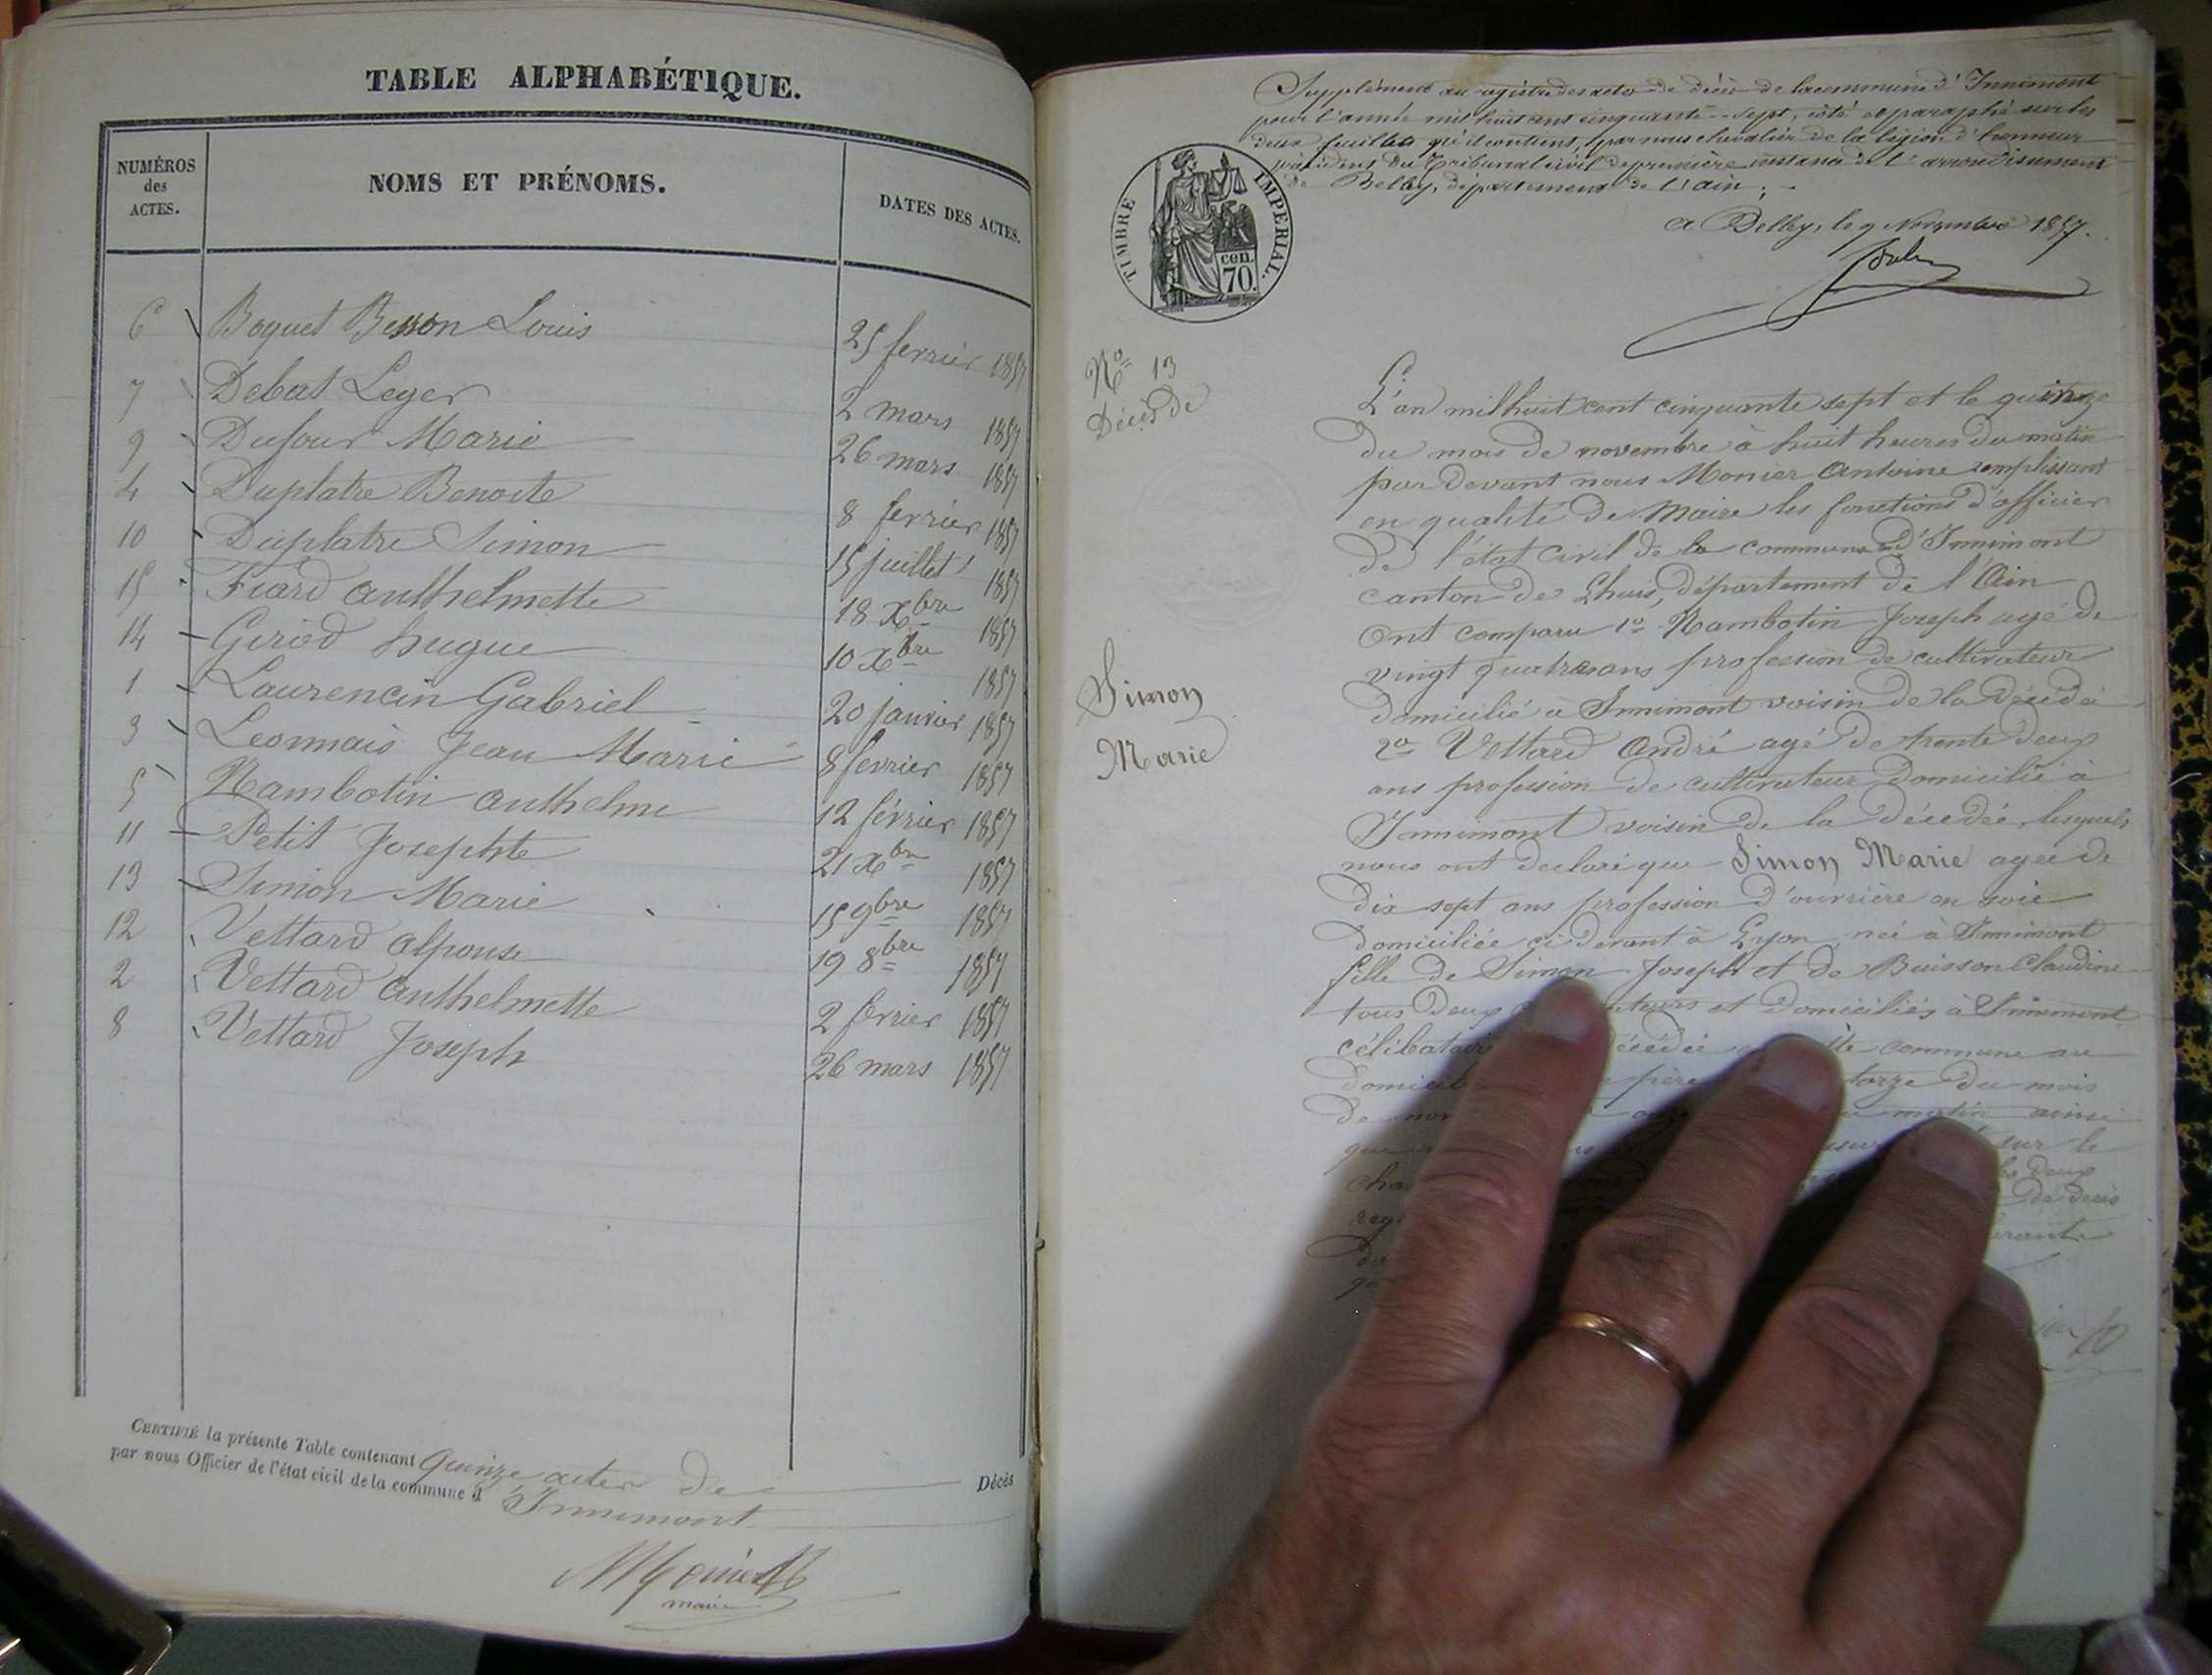 TABLE ALPHABÉTIQUE.
NUMÉROS des ACTES.
NOMS ET PRÉNOMS.
DATES DES ACTES.
6 Boquet Besson Louis 25 fevrier 1857
7 Debat Leger 2 mars 1857
9 Dufour Marie 26 mars 1857
4 Duplatre Benoite 8 fevrier 1857
10 Duplatre Simon 15 juillet 1857
15 Fiard anthelmette 18 Xbre 1857
14 Girod hugue 10 Xbre 1857
1 Laurencin Gabriel 20 janvier 1857
3 Leonnais Jean Marie 8 fevrier 1857
5 Rambotin anthelme 12 février 1857
11 Petit Josephte 21 Xbre 1857
13 Simon Marie 15 9bre 1857
12 Vettard alponse 19 8bre 1857
2 Vettard anthelmette 2 fevrier 1857
8 Vettard Joseph 26 mars 1857
CERTIFIÉ la présente Table contenant quinze actes de Décès
par nous Officier de l'état civil de la commune d Innimont
maire
Supplément au registre des actes de décès de la commune d'Innimont
pour l'année mil huit cent cinquante-sept, coté et paraphé sur les
deux feuillets qu'il contient, par nous chevalier de la légion d'honneur
président du Tribunal civil de première instance de l'arrondissement
de Belley, département de l'ain.
a Belley, le 9 Novembre 1857.
TIMBRE IMPERIAL.
cen.
70.
No 13
Décès de
Simon
Marie
L'an mil huit cent cinquante sept et le quinze
du mois de novembre à huit heures du matin
par devant nous Monier Antoine remplissant
en qualité de Maire les fonctions d'officier
de l'état civil de la commune d'Innimont
canton de Lhuis, département de l'Ain
ont comparu 1o Rambotin Joseph agé de
vingt quatre ans profession de cultivateur
domicilié à Innimont voisin de la décédé
2o Vettard André agé de trente deux
ans profession de cultivateur domicilié à
Innimont voisin de la décédée, lesquels
nous ont declaré que Simon Marie agée de
dix sept ans profession d'ouvrière en soie
domiciliée ci devant à Lyon, née à Innimont
fille de Simon Joseph et de Buisson Claudine
tous deux et domiciliés à Innimont
commune au
père du mois
de matin ainsi
sur le
deux
de décès